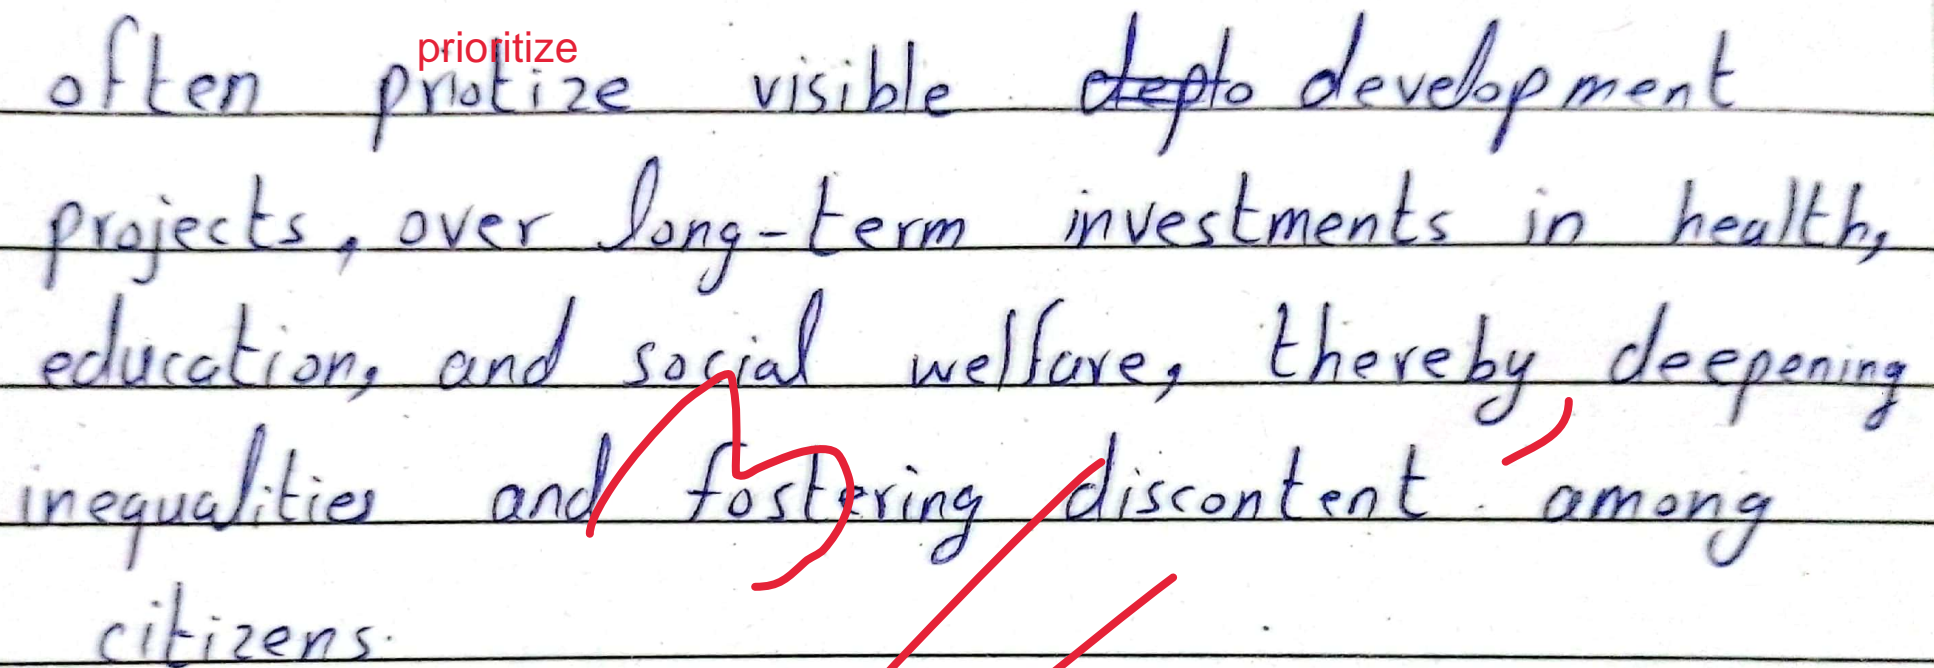 prioritize
often priotize visible depto development
projects, over long-term investments in health,
education, and social welfare, thereby deepening
inequalities and fostering discontent among
citizens.